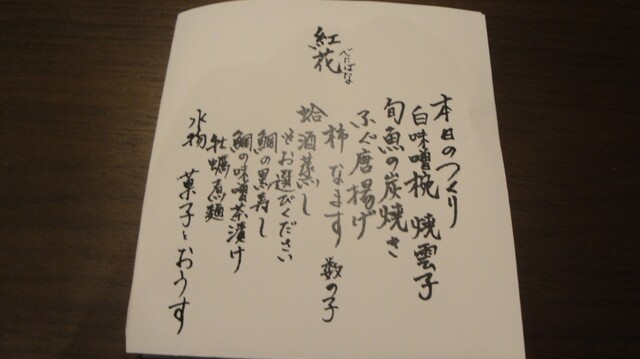 紅花
べにばな
本日のつくり
白味噌椀 焼雲子
旬魚の炭焼き
ふぐ唐揚げ
柿なます 数の子
蛤酒蒸し
お選びください
鯛の黒寿し
鯛の味噌茶漬け
牡蠣煮麺
水物 菓子とおうす